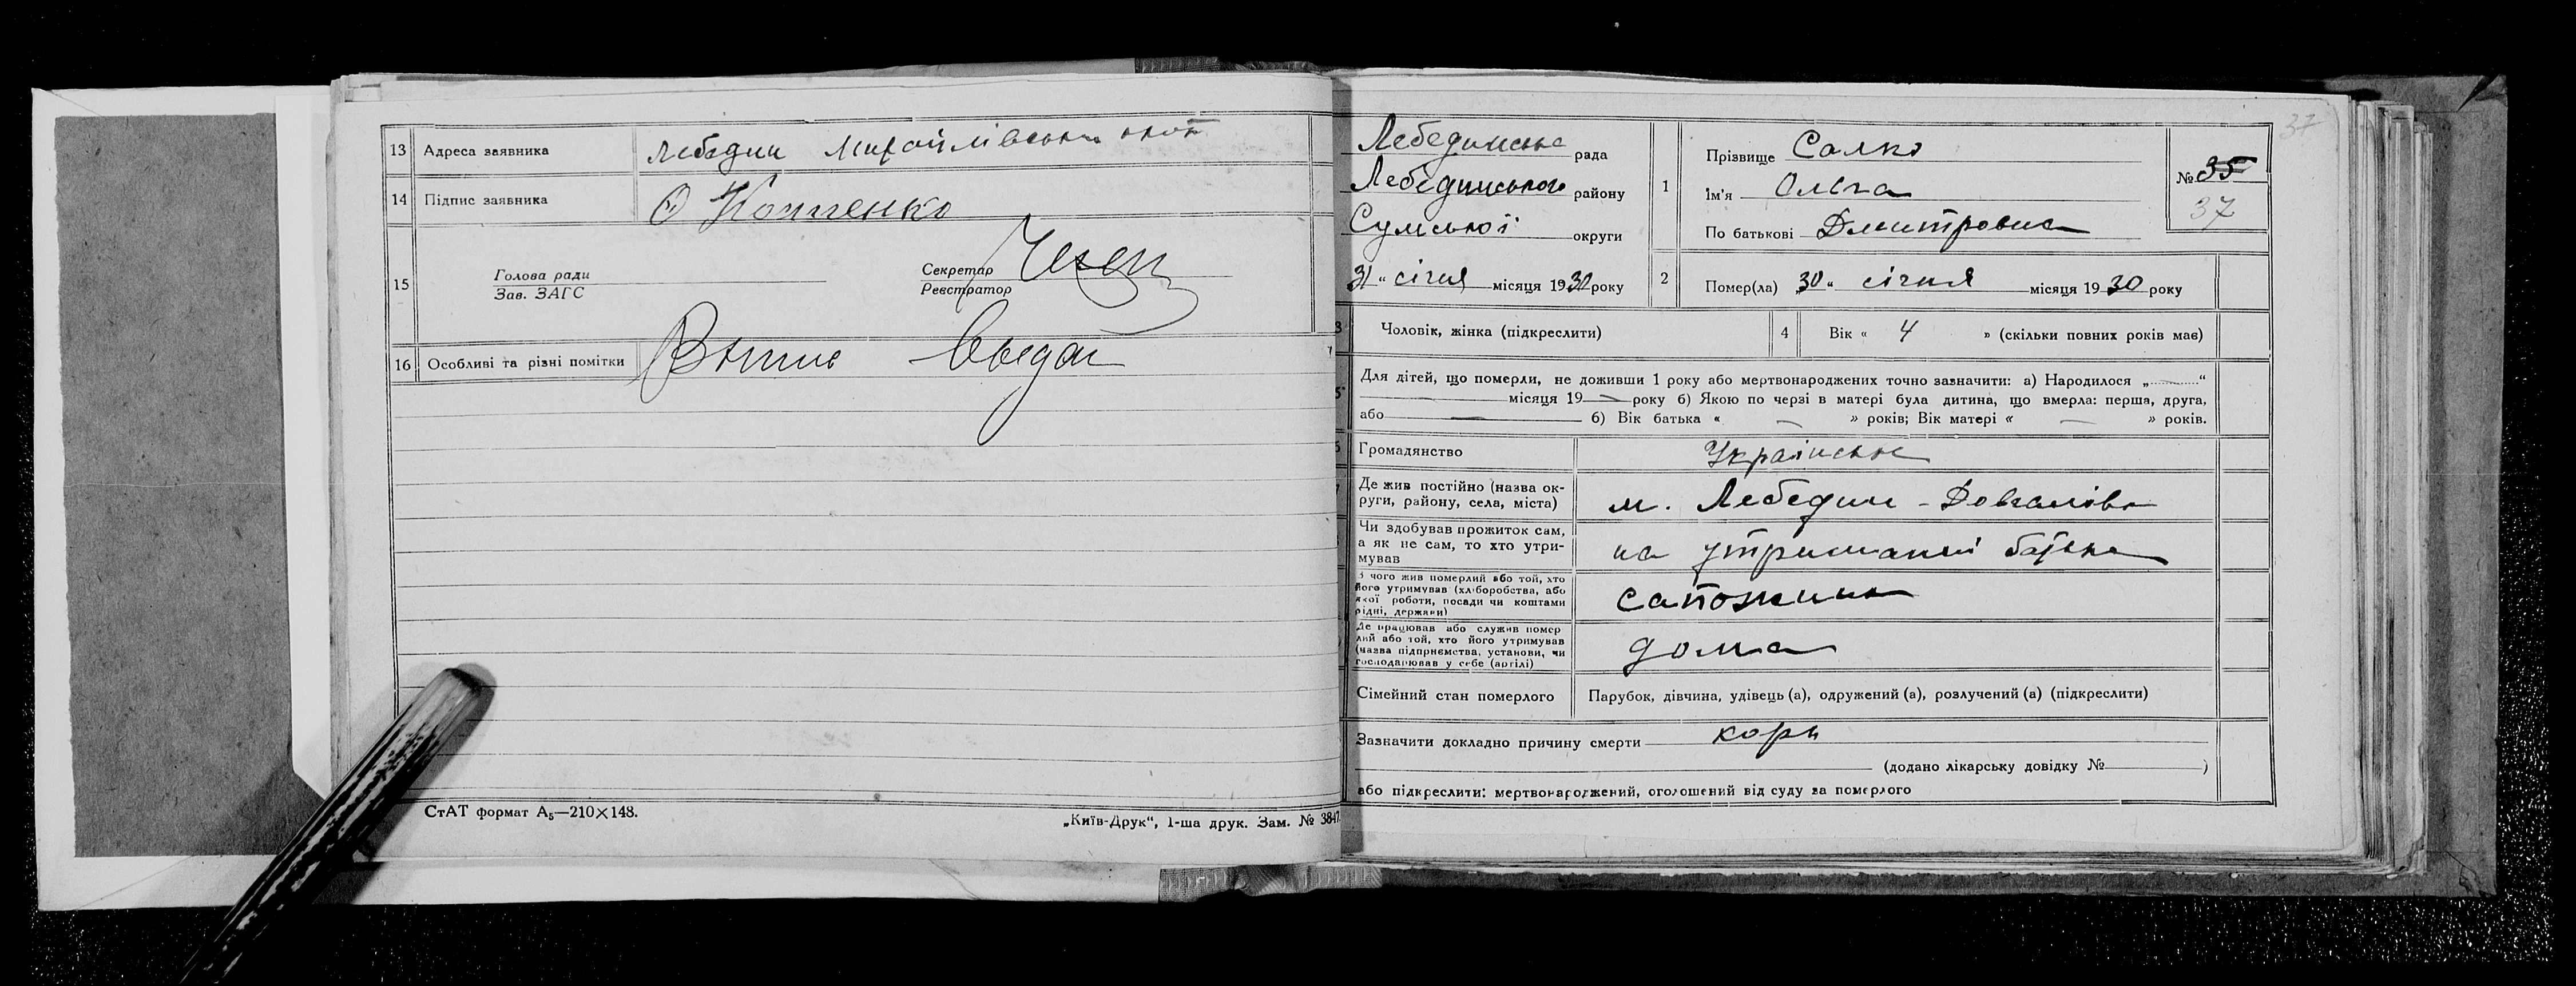 13 Адреса заявника Лебедин Михайлівська
14 Підпис заявника О Кошенко
15 Голова ради
Зав. ЗАГС
Секретар
Реєстратор
16 Особліві та різні помітки
СтАТ формат А₅—210×148.
„Київ-Друк“, 1-ша друк. Зам. № 3847
37
Лебединська рада
Лебединського району
Сумської округи
31 “ січня місяця 1930 року
1 Прізвище Салко
Ім'я Ольга
По батькові Дмитровна
№ 35
37
2 Помер(ла) 30 “ січня місяця 1930 року
3 Чоловік, жінка (підкреслити)
4 Вік « 4 » (скільки повних років має)
5 Для дітей, що померли, не доживши 1 року або мертвонароджених точно зазначити: а) Народилося „ “
місяця 19 — року б) Якою по черзі в матері була дитина, що вмерла: перша, друга,
або — б) Вік батька « — » років; Вік матері « — » років.
6 Громадянство Українська
Де жив постійно (назва ок-
руги, району, села, міста) м. Лебедин - Довгалівка
Чи здобував прожиток сам,
а як не сам, то хто утри-
мував на утриманні батька
З чого жив померлий або той, хто
його утримував (хліборобства, або
якої роботи, посади чи коштами
рідні, держави) сапожник
Де працював або служив помер
лий або той, хто його утримував
(назва підприємства, установи, чи
господарював у себе (артілі) дома
Сімейний стан померлого Парубок, дівчина, удівець (а), одружений (а), розлучений (а) (підкреслити)
Зазначити докладно причину смерти корь
(додано лікарську довідку № )
або підкреслити: мертвонароджений, оголошений від суду за померлого